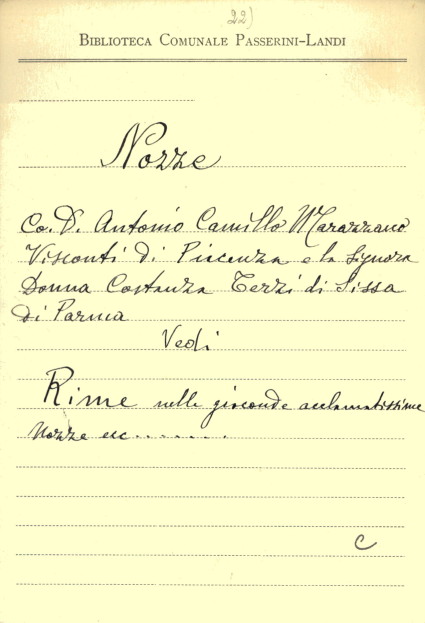 22)
BIBLIOTECA COMUNALE PASSERINI-LANDI
Nozze
Co. D. Antonio Camillo Marazzano
Visconti di Piacenza e la Signora
Donna Costanza Terzi di Sissa
di Parma
Vedi
Rime nelle gioconde acclamatissime
nozze ec........
C